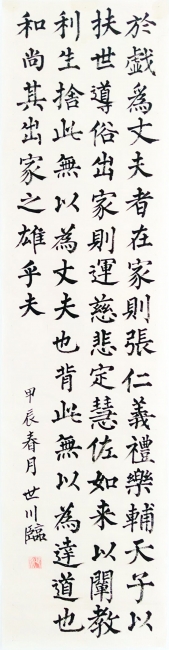 於戯為丈夫者在家則張仁義禮樂輔天子以
扶世導俗出家則運慈悲定慧佐如来以闡教
利生捨此無以為丈夫也背此無以為達道也
和尚其出家之雄乎夫
甲辰春月世川臨